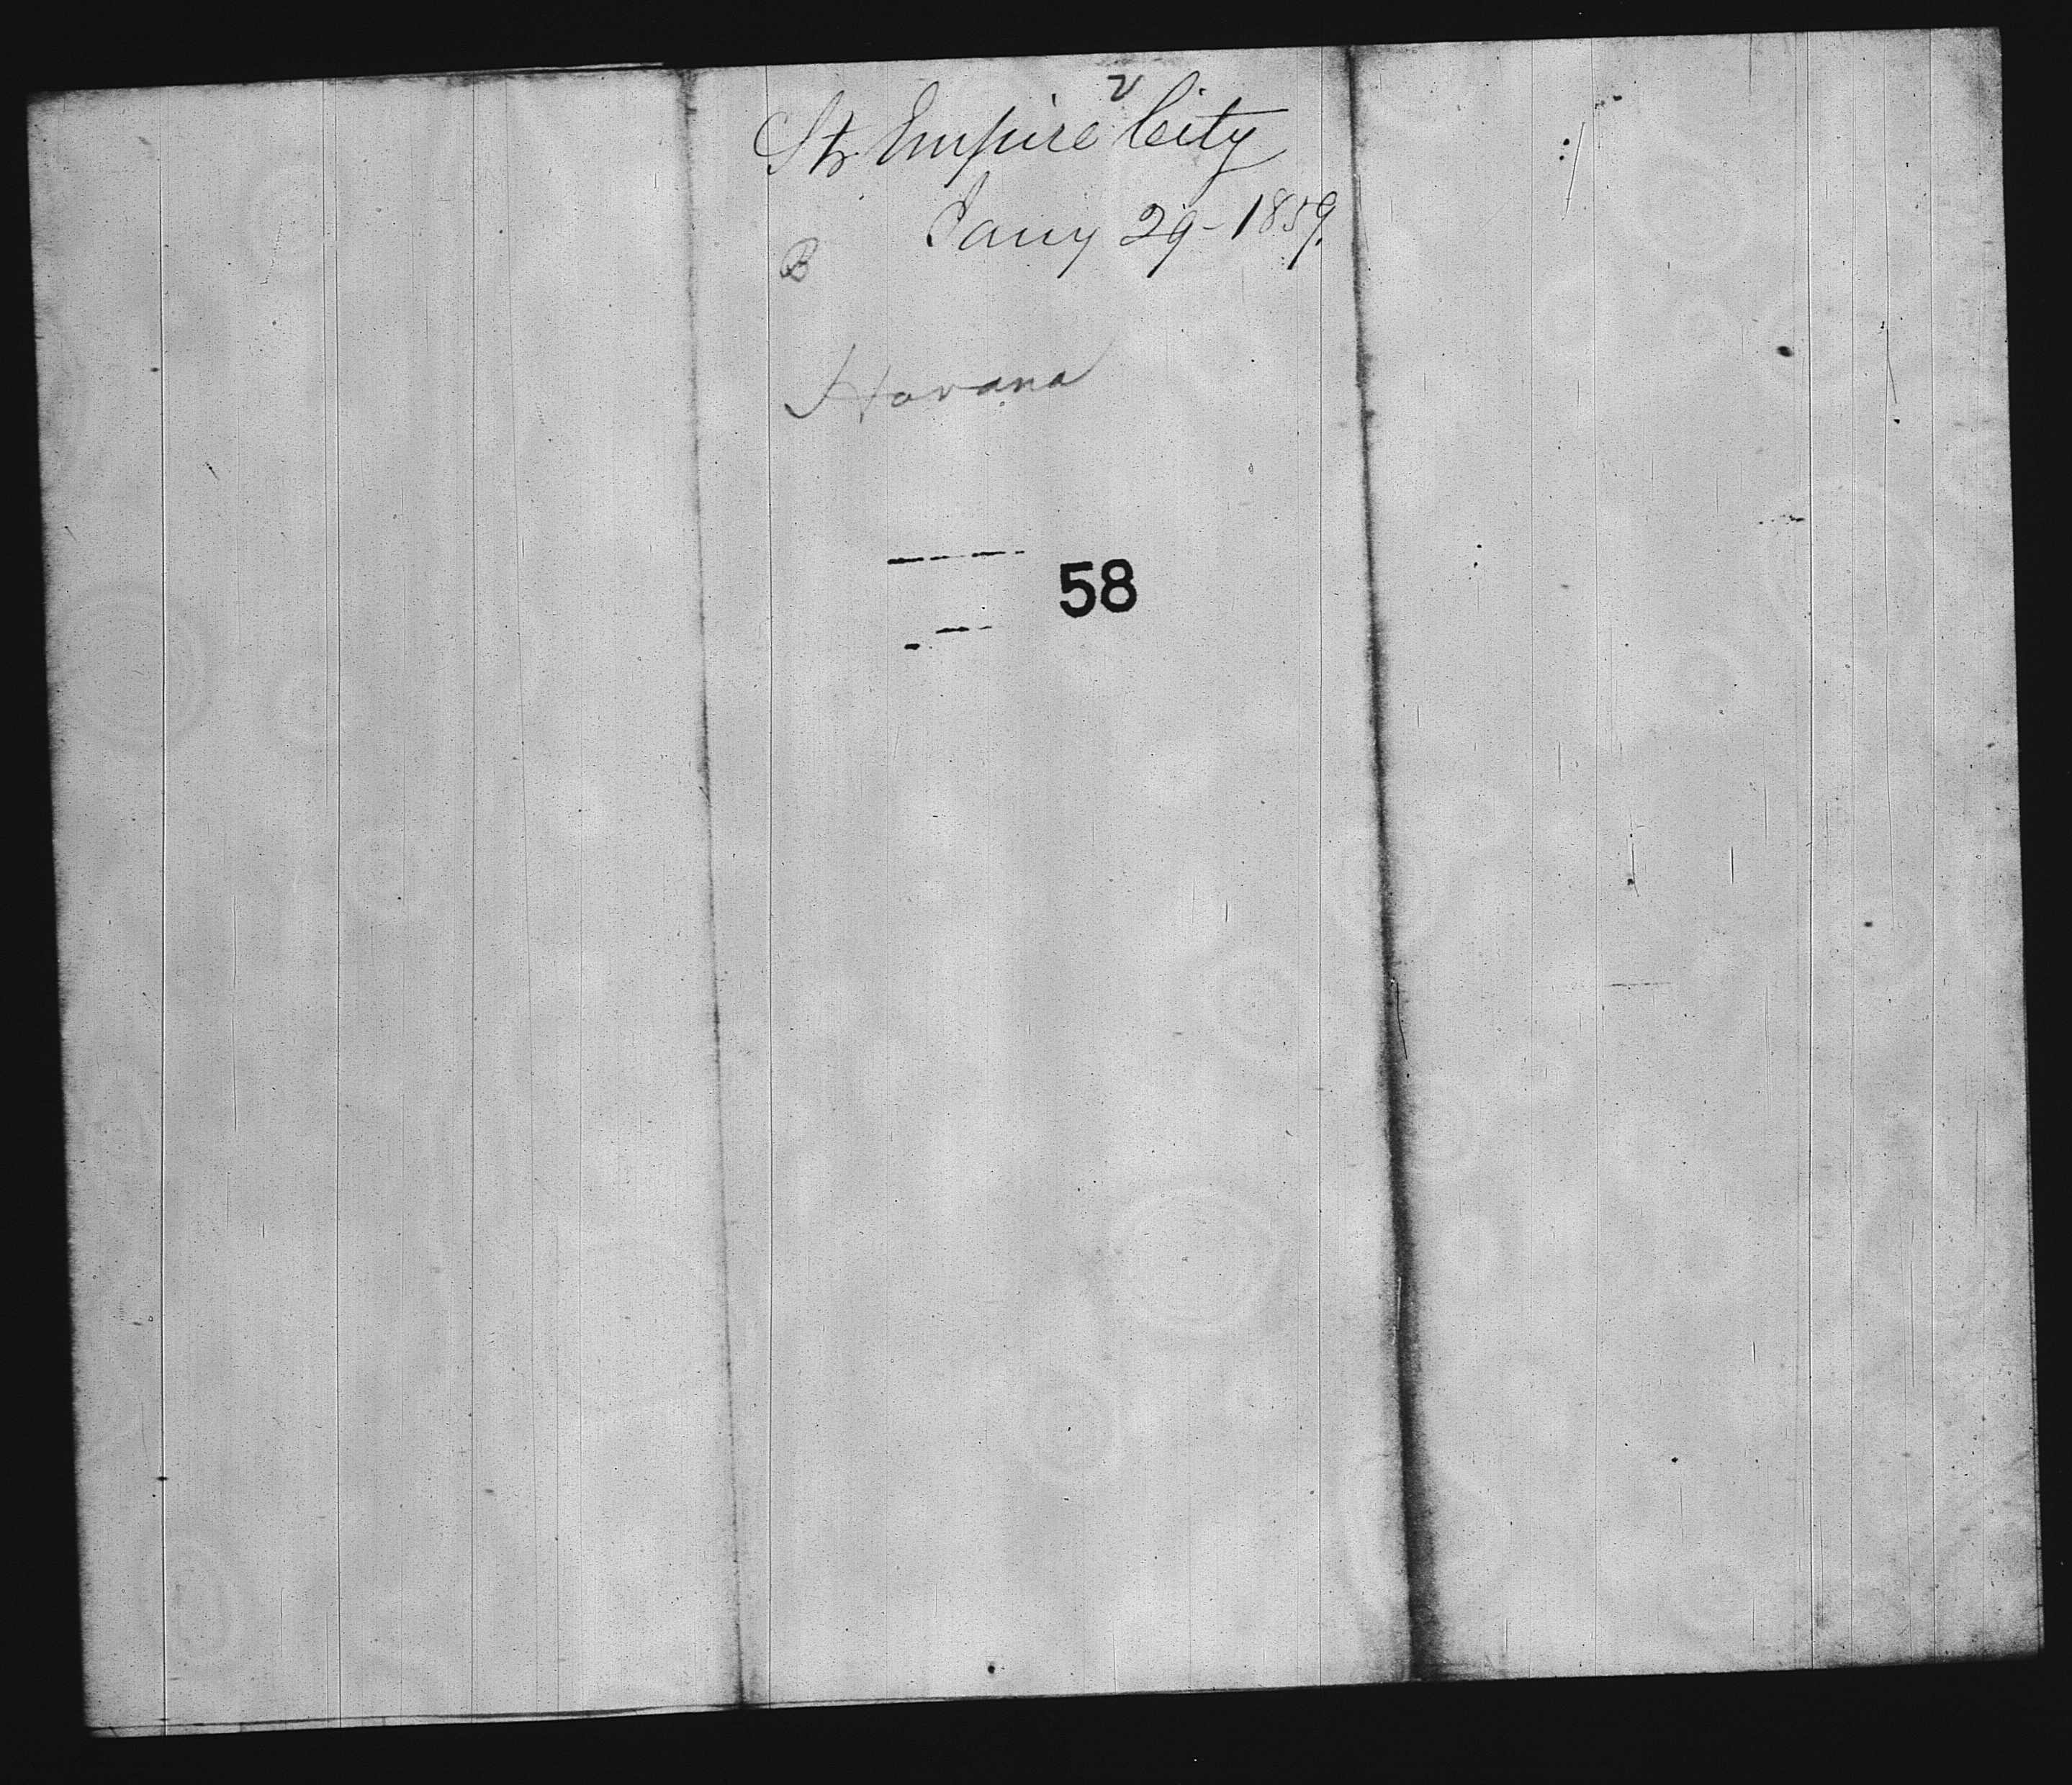 v
Str Empire City
Jany 29 - 1859.
B
Havana
58